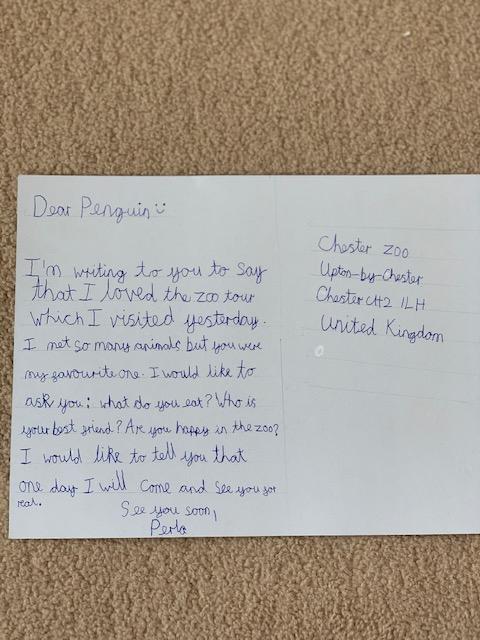 Dear Penguin :)
I'm writing to you to say
that I loved the zoo tour
which I visited yesterday.
I met so many animals but you were
my favourite one. I would like to
ask you: what do you eat? Who is
your best friend? Are you happy in the zoo?
I would like to tell you that
one day I will come and see you for
real.
See you soon,
Perla
Chester Zoo
Upton-by-Chester
Chester CH2 1LH
United Kingdom